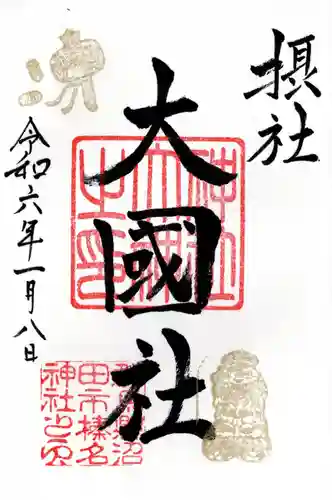 摂社
大國社
令和六年一月八日
群馬県沼
田市榛名
神社之印